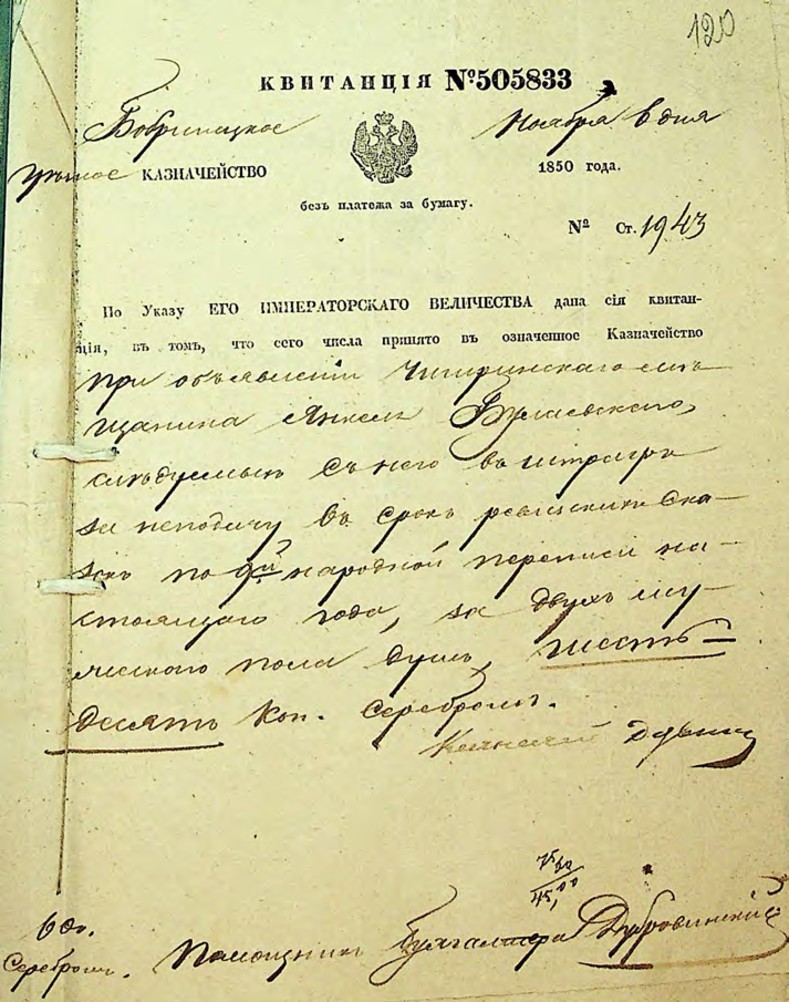 120
КВИТАНЦІЯ №505833
Бобринецкое
Ноября 6 дня
уѣздное КАЗНАЧЕЙСТВО
1850 года.
безъ платежа за бумагу.
№ Ст. 1943
По Указу ЕГО ИМПЕРАТОРСКАГО ВЕЛИЧЕСТВА дана сія квитан-
ція, въ томъ, что сего числа принято въ означенное Казначейство
при объявленіи Чигиринскаго мѣ-
щанина Янкеля
слѣдуемыхъ съ него въ штрафъ
за неподачу въ срокъ ревизскихъ ска-
зокъ по 9й народной переписи на-
стоящаго года, за двухъ му-
жескаго пола душъ, шесть-
десятъ коп. серебромъ.
Казначей
45,00
60 к.
Серебромъ. Помощникъ Бухгалтера Дубровинскій